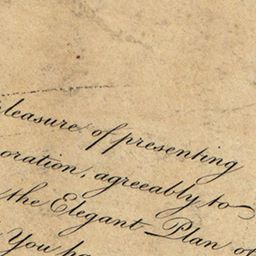 pleasure of presenting
oration, agreeably to
the Elegant Plan of
You ha